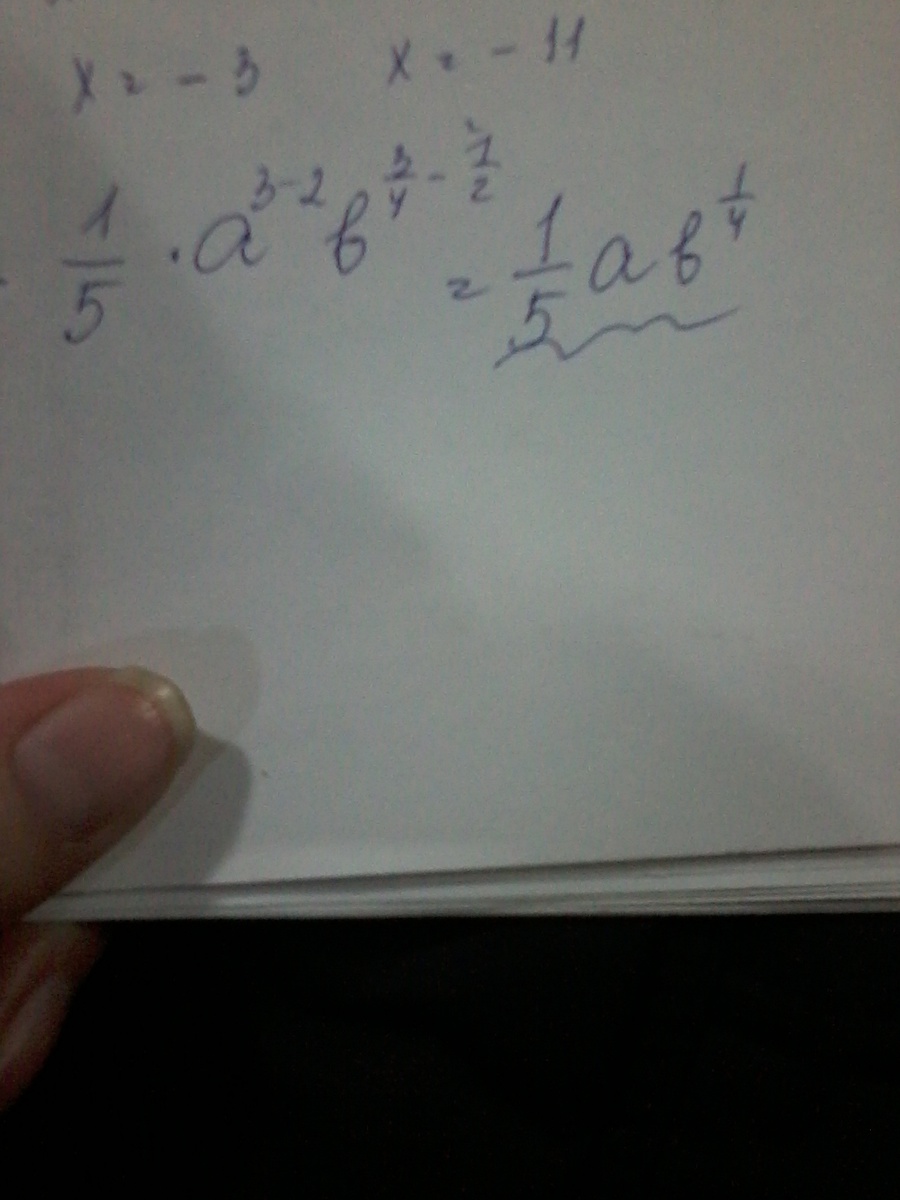 x = - 3 x = - 11
1/5 · a^(3-2) b^(3/4 - 1/2) = 1/5 a b^(1/4)